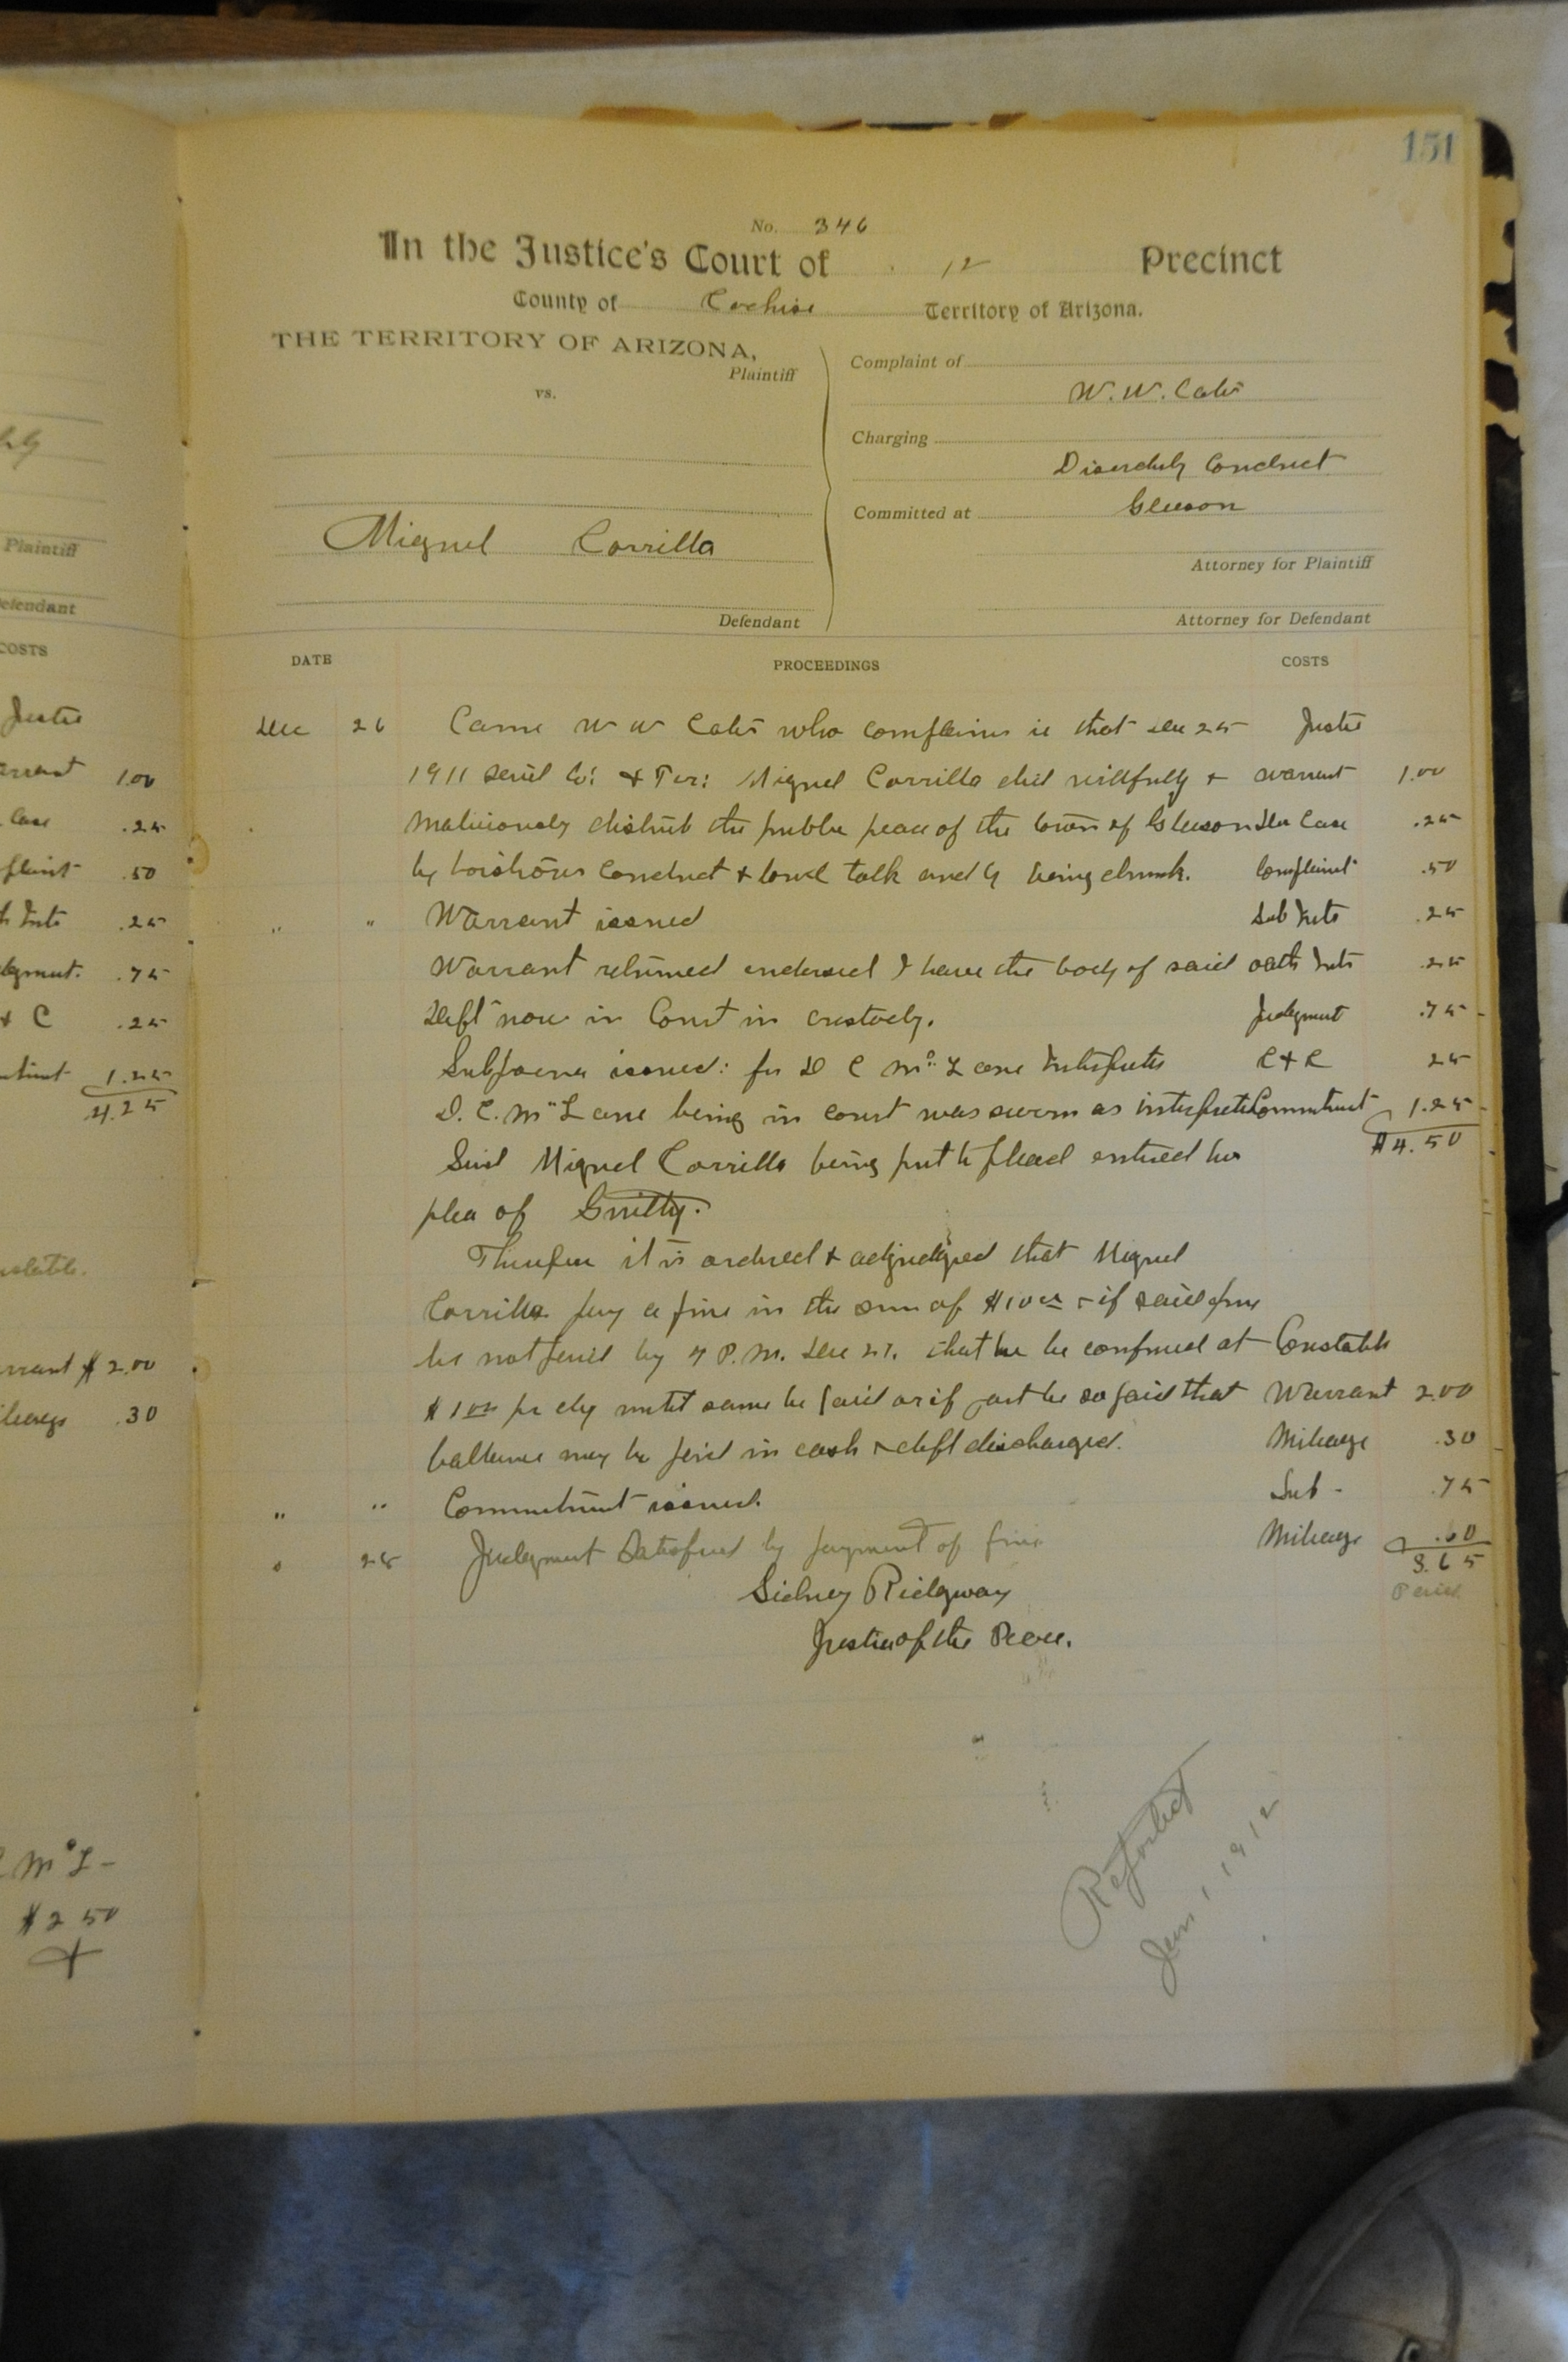 Plaintiff
Defendant
COSTS
Justice
Warrant 1.00
Case .25
Complaint .50
Ints .25
Judgment. .75
& C .25
1.25
4.25
Warrant $2.00
Mileage .30
McL-
$2 50
151
No. 346
In the Justice's Court of 12 Precinct
County of Cochise Territory of Arizona.
THE TERRITORY OF ARIZONA,
Plaintiff
vs.
Miguel Corrilla
Defendant
Complaint of
W. W. Cates
Charging
Disorderly Conduct
Committed at Gleeson
Attorney for Plaintiff
Attorney for Defendant
DATE PROCEEDINGS COSTS
Dec 26 Came W W Cates who complains is that Dec 25 Justice
1911 said Co: & Ter: Miguel Corrilla did willfully & warrant 1.00
maliciously disturb the public peace of the town of Gleeson Case .25
by boistrous conduct & loud talk and by being drunk. Complaint .50
" " Warrant issued Sub Ints .25
Warrant returned endorsed I have the body of said oath Ints .25
Deft now in Court in custody. Judgment .75
Subpoena issued: for D C McLane Interpreter 25
D. C. McLane being in court was sworn as interpreter Commitment 1.25
Said Miguel Corrilla being put to plead entered his $4.50
plea of Guilty.
Therefor it is ordered & adjudged that Miguel
Corrilla pay a fine in the sum of $10.00 & if said fine
be not paid by 7 P.M. Dec 27. that he be confined at Constable
$1.00 pr dy until same be paid or if part be so paid that Warrant 2.00
ballance may be paid in cash & deft discharged. Mileage .30
" " Commitment issued. Sub - .75
" 28 Judgment Satisfied by payment of fine Mileage .60
3.65
Sidney Ridgway Paid
Justice of the Peace.
Reported
Jan 1 1912